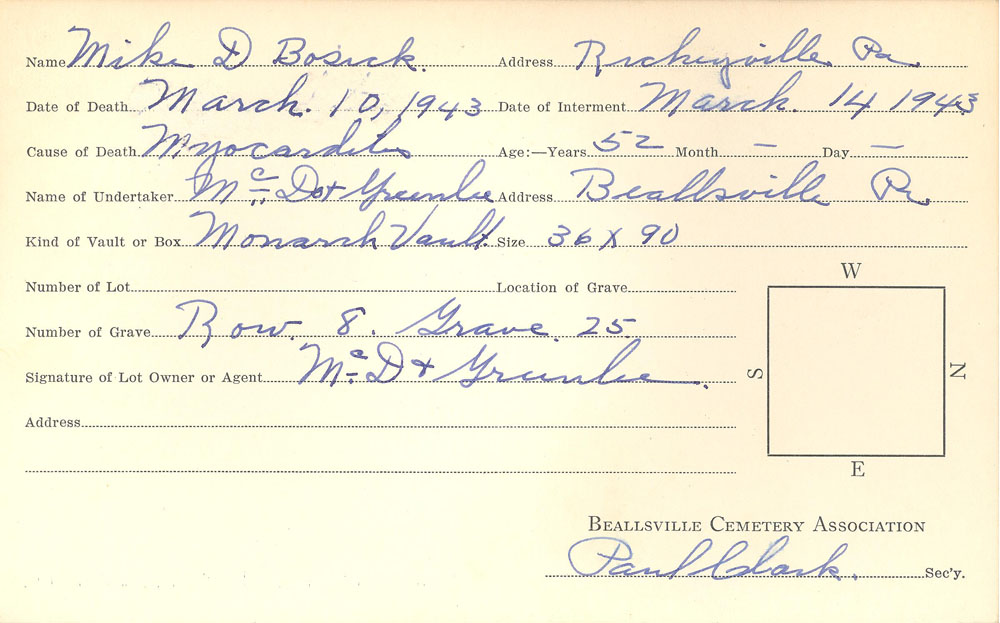 Name Mike D Bosick. Address Richeyville Pa
Date of Death March. 10, 1943 Date of Interment March. 14 1943
Cause of Death Myocarditis Age:—Years 52 Month – Day –
Name of Undertaker Mc D & Greenlee Address Beallsville Pa
Kind of Vault or Box Monarch Vault. Size 36 X 90
Number of Lot Location of Grave
Number of Grave Row. 8. Grave. 25
Signature of Lot Owner or Agent Mc D & Greenlee.
Address
W
S
N
E
BEALLSVILLE CEMETERY ASSOCIATION
Paul Clark. Sec'y.